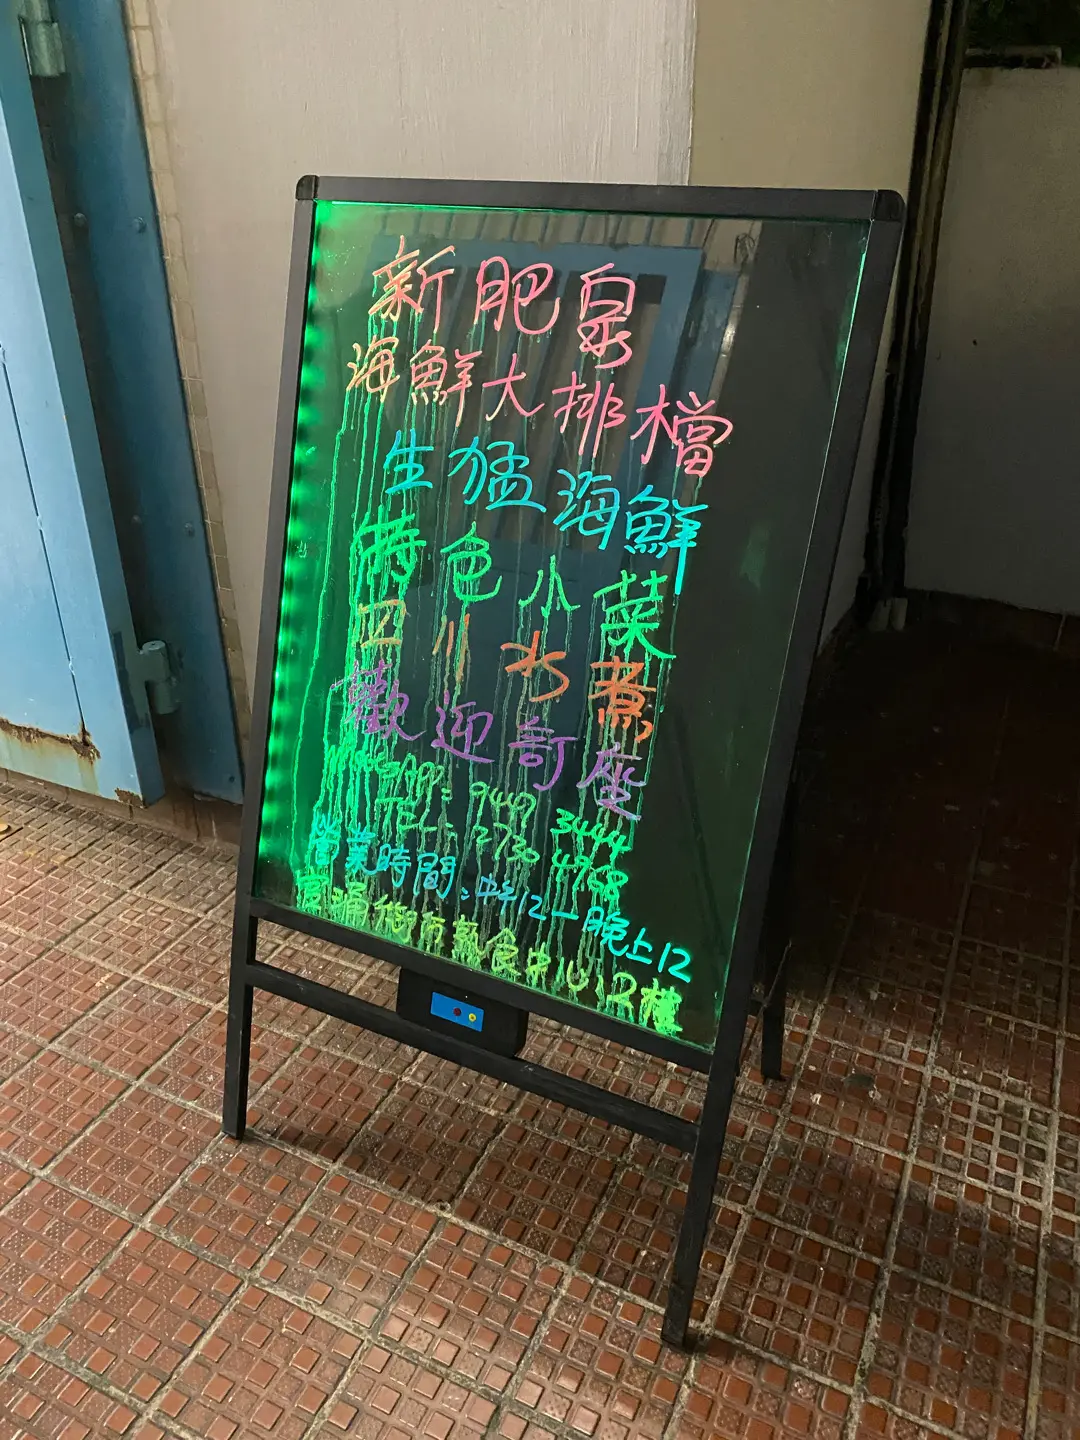 新肥泉
海鮮大排檔
生猛海鮮
特色小菜
四川水煮
歡迎訂座
WhatsApp: 9449 3444
TEL: 2730 4968
營業時間:中午12—晚上12
街市熟食中心2樓